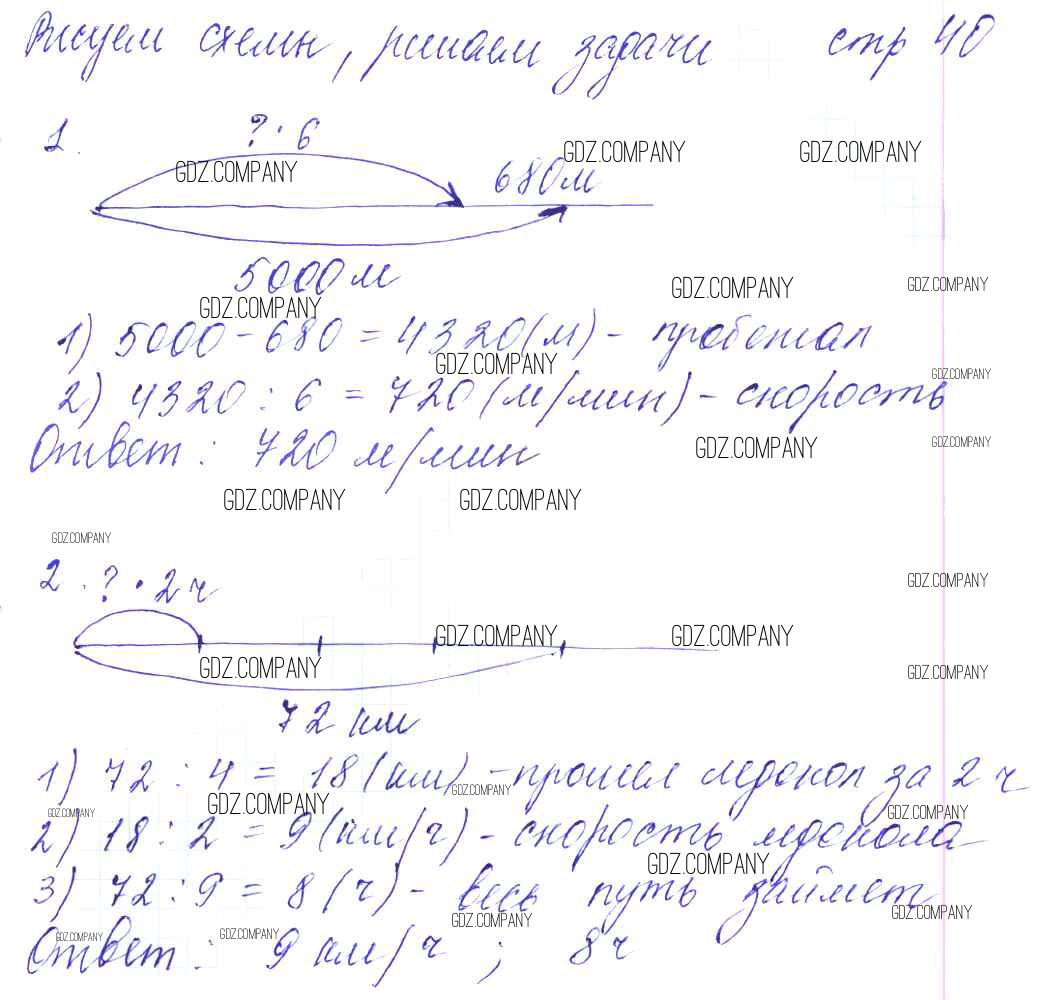 Рисуем схемы, решаем задачи стр 40
1. ? · 6
GDZ.COMPANY GDZ.COMPANY GDZ.COMPANY
680м
5000м
GDZ.COMPANY GDZ.COMPANY GDZ.COMPANY
1) 5000 - 680 = 4320(м) - пробежал
GDZ.COMPANY GDZ.COMPANY
2) 4320 : 6 = 720 (м/мин) - скорость
Ответ : 720 м/мин
GDZ.COMPANY GDZ.COMPANY
GDZ.COMPANY GDZ.COMPANY
GDZ.COMPANY
2. ? · 2 ч
GDZ.COMPANY
GDZ.COMPANY GDZ.COMPANY
GDZ.COMPANY GDZ.COMPANY
72 км
1) 72 : 4 = 18 (км) - прошел ледокол за 2 ч
GDZ.COMPANY GDZ.COMPANY
GDZ.COMPANY GDZ.COMPANY
2) 18 : 2 = 9 (км/ч) - скорость ледокола
GDZ.COMPANY
3) 72 : 9 = 8 (ч) - весь путь займет
GDZ.COMPANY GDZ.COMPANY
GDZ.COMPANY GDZ.COMPANY
Ответ : 9 км/ч ; 8ч